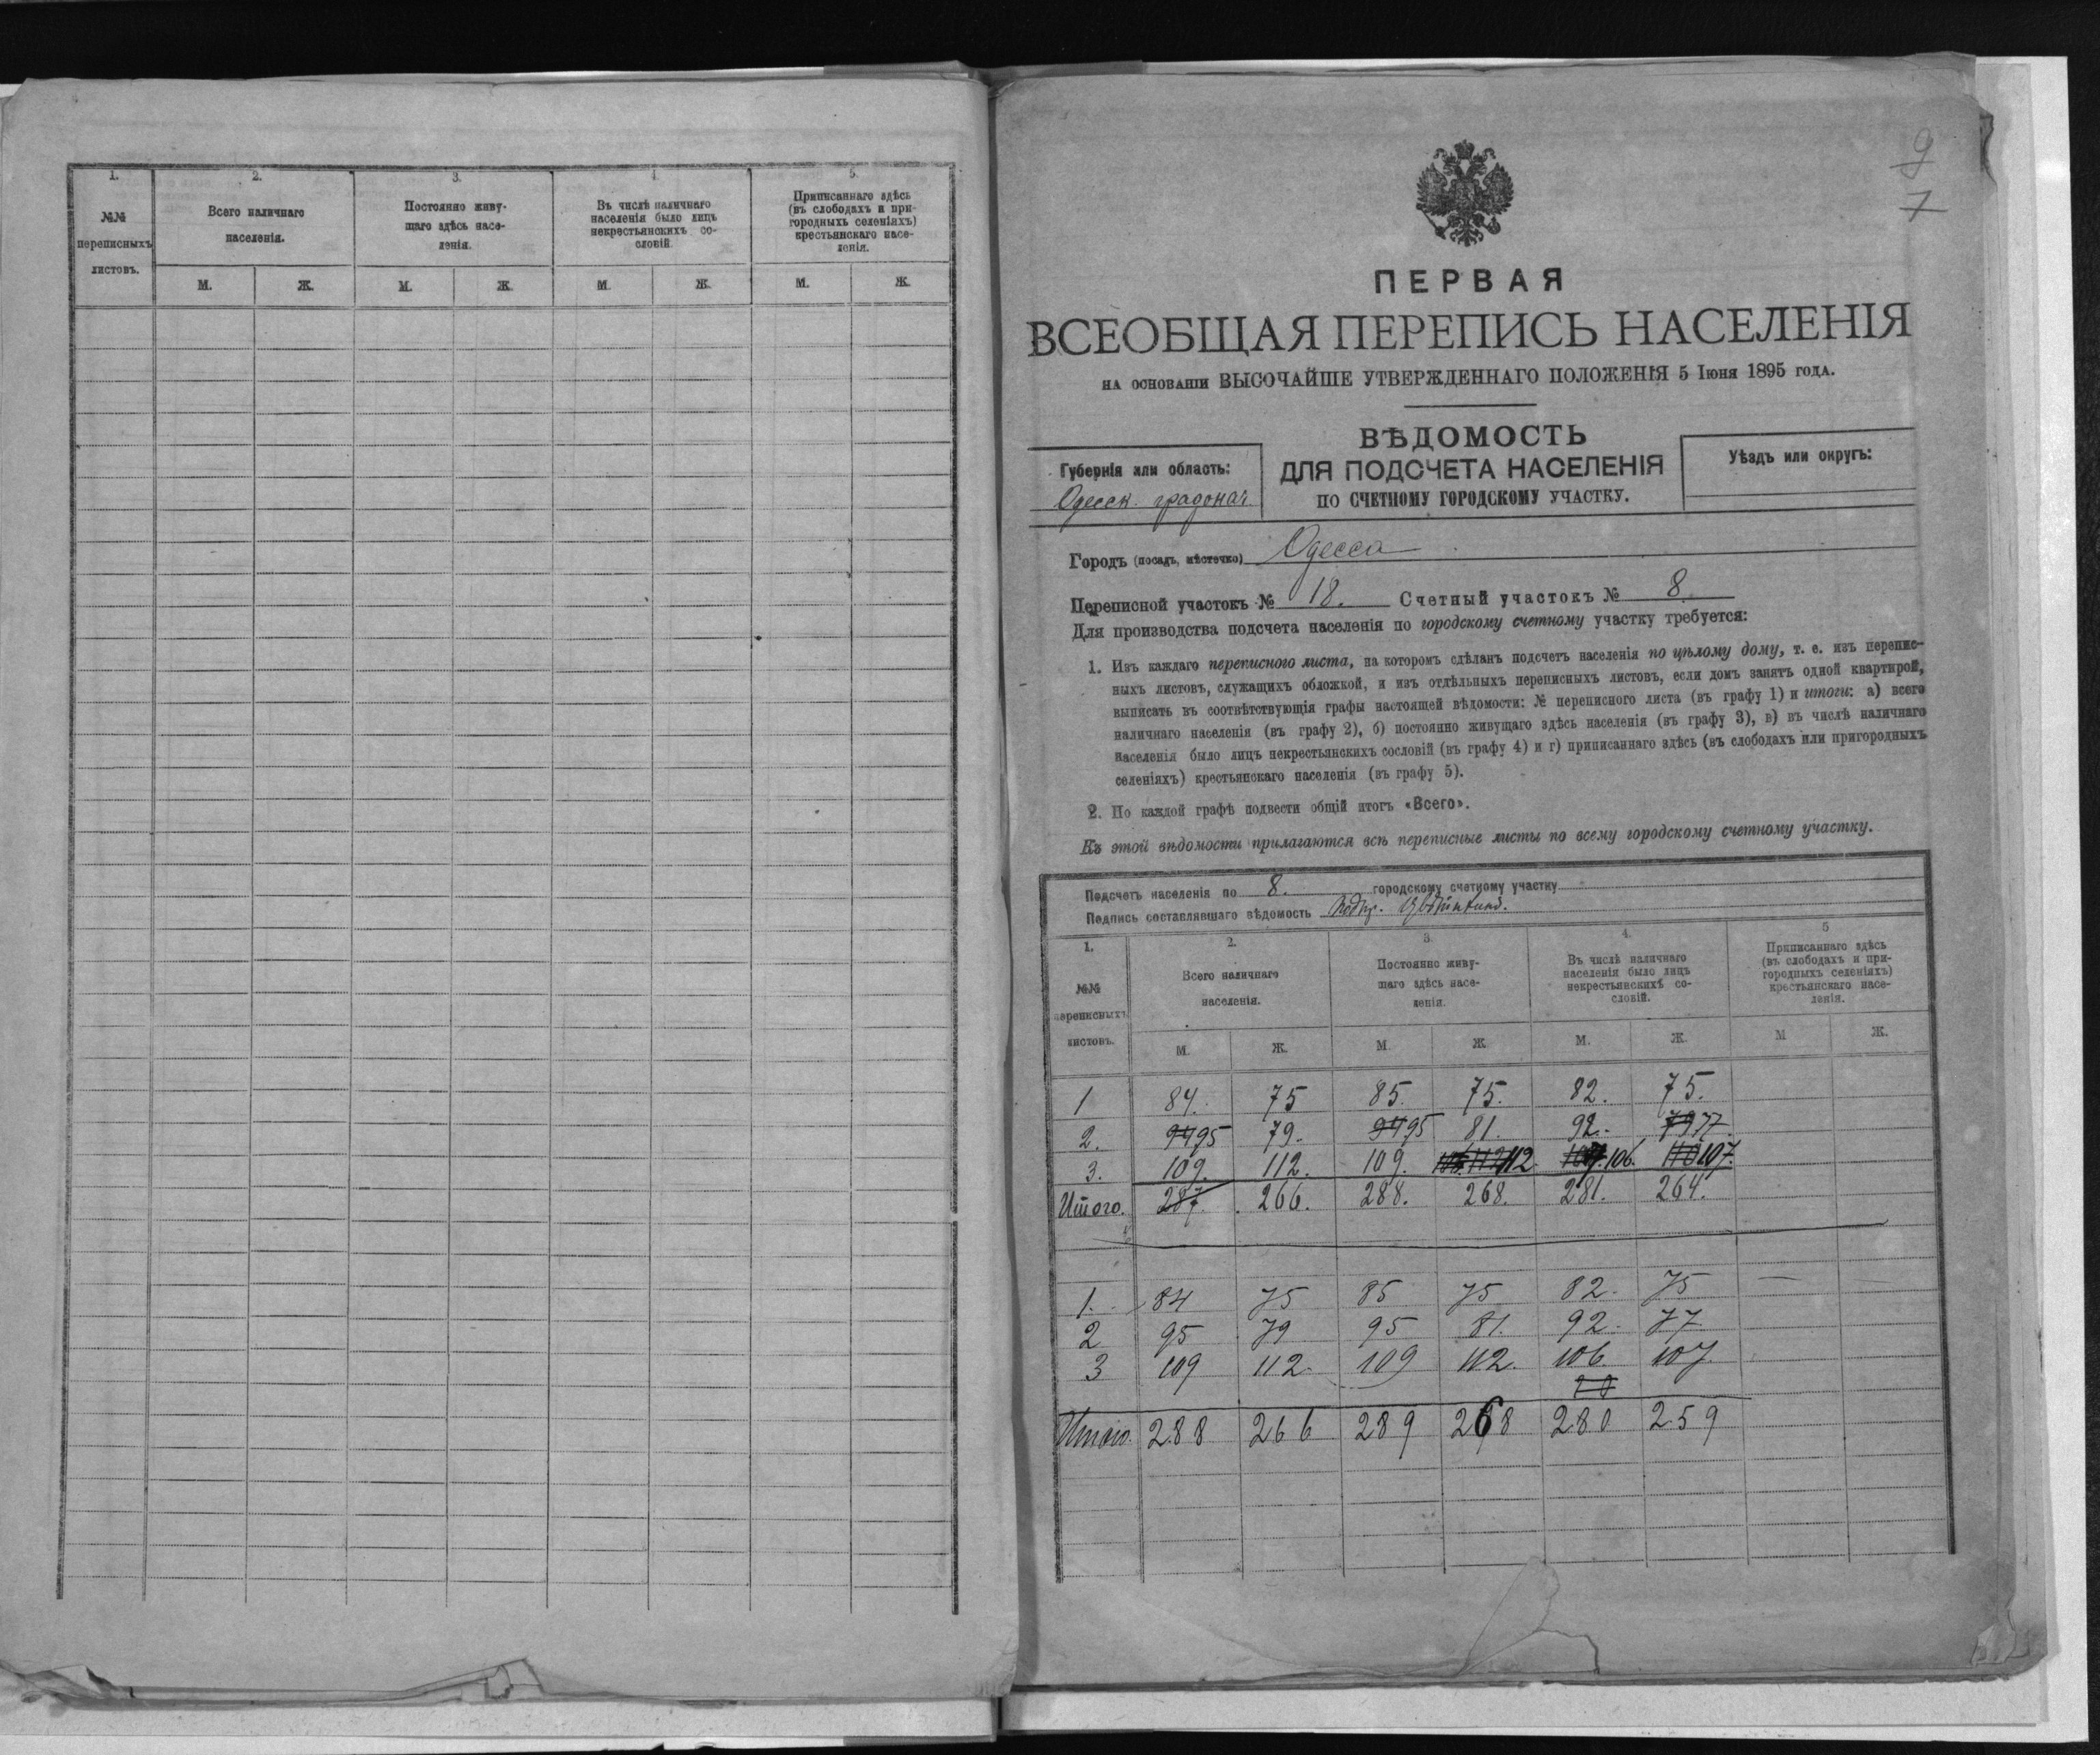 1. 2. 3. 4. 5.
№№ переписныхъ листовъ.
Всего наличнаго населенія.
Постоянно живущаго здѣсь населенія.
Въ числѣ наличнаго населенія было лицъ некрестьянскихъ сословій.
Приписаннаго здѣсь (въ слободахъ и пригородныхъ селеніяхъ) крестьянскаго населенія.
М. Ж. М. Ж. М. Ж. М. Ж.
9
7
ПЕРВАЯ
ВСЕОБЩАЯ ПЕРЕПИСЬ НАСЕЛЕНІЯ
НА ОСНОВАНІИ ВЫСОЧАЙШЕ УТВЕРЖДЕННАГО ПОЛОЖЕНІЯ 5 Іюня 1895 года.
Губернія или область:
Одесск. градонач.
ВѢДОМОСТЬ
ДЛЯ ПОДСЧЕТА НАСЕЛЕНІЯ
ПО СЧЕТНОМУ ГОРОДСКОМУ УЧАСТКУ.
Уѣздъ или округъ:
Городъ (посадъ, мѣстечко) Одесса
Переписной участокъ № 18. Счетный участокъ № 8.
Для производства подсчета населенія по городскому счетному участку требуется:
1. Изъ каждаго переписного листа, на которомъ сдѣланъ подсчетъ населенія по цѣлому дому, т. е. изъ перепис-
ныхъ листовъ, служащихъ обложкой, и изъ отдѣльныхъ переписныхъ листовъ, если домъ занятъ одной квартирой,
выписать въ соотвѣтствующія графы настоящей вѣдомости: № переписного листа (въ графу 1) и итоги: а) всего
наличнаго населенія (въ графу 2), б) постоянно живущаго здѣсь населенія (въ графу 3), в) въ числѣ наличнаго
населенія было лицъ некрестьянскихъ сословій (въ графу 4) и г) приписаннаго здѣсь (въ слободахъ или пригородныхъ
селеніяхъ) крестьянскаго населенія (въ графу 5).
2. По каждой графѣ подвести общій итогъ «Всего».
Къ этой вѣдомости прилагаются всѣ переписные листы по всему городскому счетному участку.
Подсчетъ населенія по 8. городскому счетному участку
Подпись составлявшаго вѣдомость
1. 2. 3. 4. 5
№№ переписныхъ листовъ.
Всего наличнаго населенія.
Постоянно живу-щаго здѣсь насе-ленія.
Въ числѣ наличнаго населенія было лицъ некрестьянскихъ со-словій.
Приписаннаго здѣсь (въ слободахъ и при-городныхъ селеніяхъ) крестьянскаго насе-ленія.
М. Ж. М. Ж. М. Ж. М Ж.
1 84. 75 85. 75. 82. 75.
2. 94 95 79. 94 95 81. 92. 79 77.
3. 109. 112. 109. 112. 106. 110 107.
Итого. 287. 266. 288. 268. 281. 264.
1. 84 75 85 75 82. 75 — —
2 95 79 95 81. 92. 77.
3 109 112. 109 112. 106 107.
Итого. 288 266 289 268 280 259